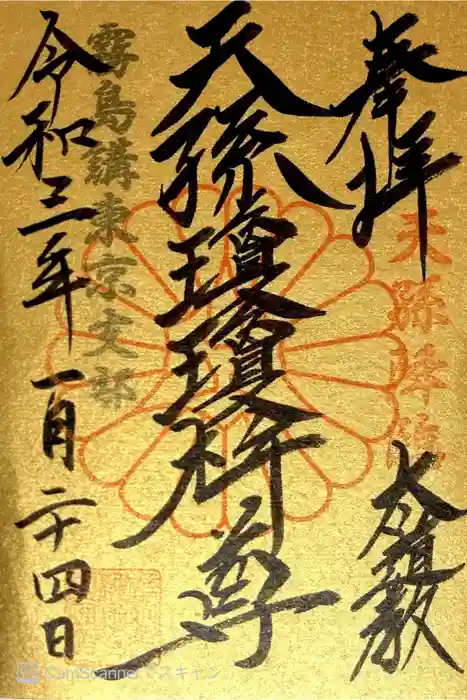 奉拝
天孫降臨
大道教
天孫瓊瓊杵尊
霧島講東京支部
令和三年一月二十四日
CamScannerでスキャン